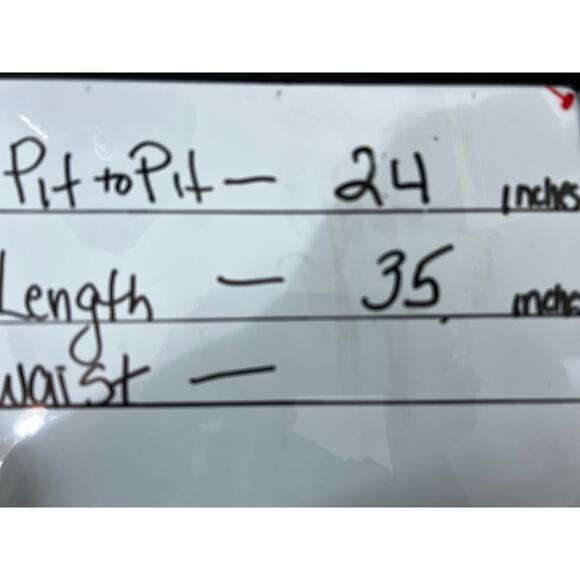 Pit to Pit — 24 inches
Length — 35 inches
Waist —